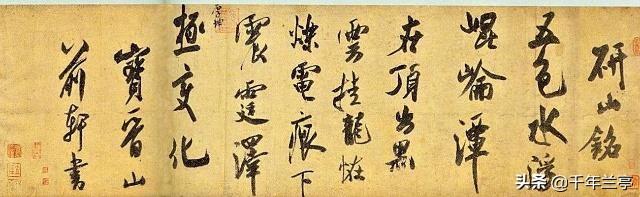 研山銘
五色水浮
崐崘潭
在頂出黑
雲挂龍恠
爍電痕下
震霆澤
極變化
寶晉山
前軒書
头条 @千年兰亭